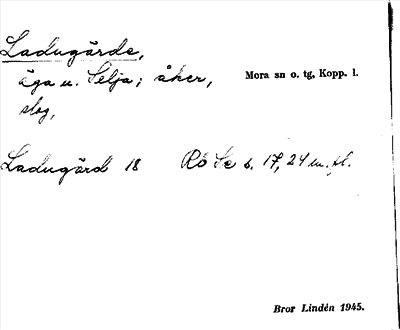 Ladugårde,
äga u. Selja; åker,
slog,
Mora sn o. tg, Kopp. l.
Ladugård 18 Rö Se s. 17, 24 m. fl.
Bror Lindén 1945.